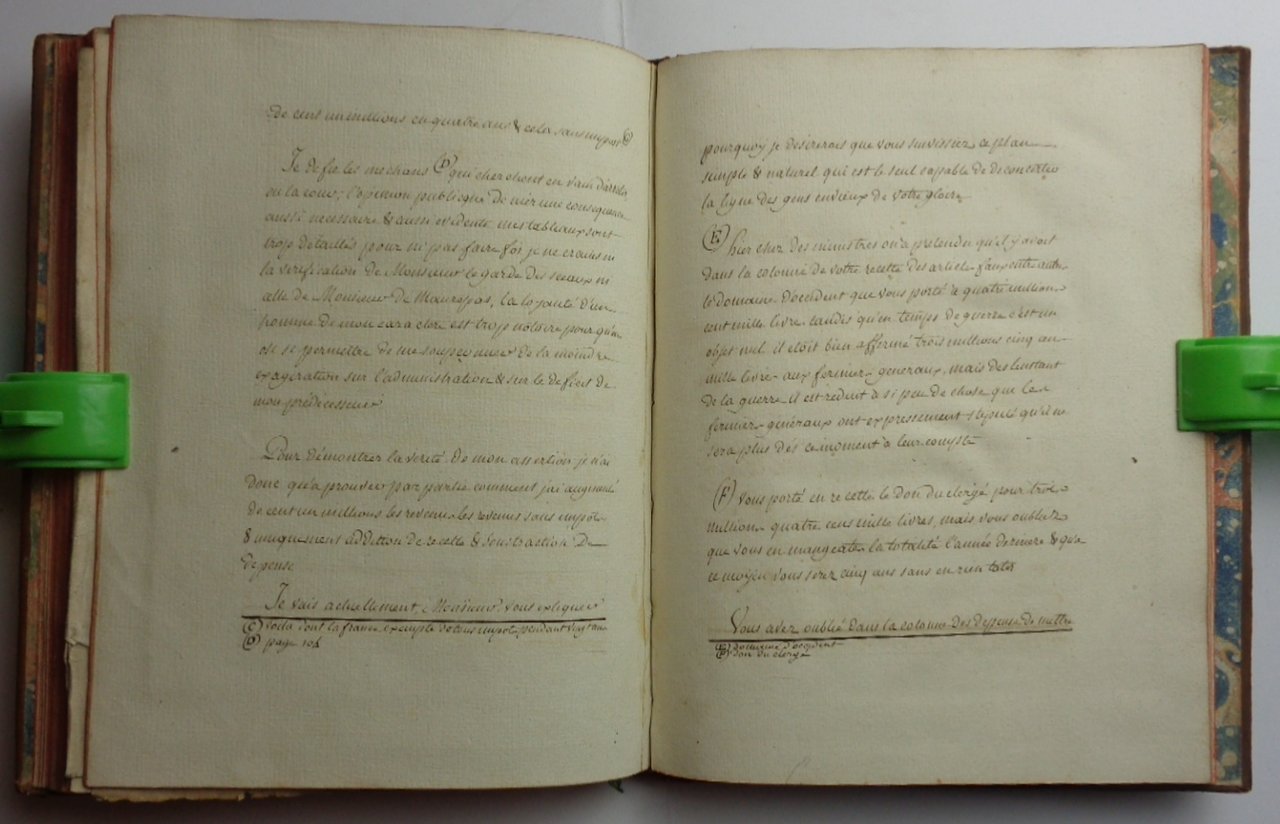 de cent un millions en quatre ans & cela sans impost (C)
Je defie les mechans (D) qui cherchent en vain d'
ou la cour, l'opinion publique de nier une consequence
aussi necessaire & aussi evidente mes tableaux sont
trop detaillés pour n'y pas faire foi je ne crains ni
la verification de Monsieur le garde des sceaux ni
celle de Monsieur de Maurepas, la loyauté d'un
homme de mon caractere est trop notoire pour qu'on
ose se permettre de me soupçonner de la moindre
exageration sur l'administration & sur le deficit de
mon prédecesseur
Pour démontrer la verité de mon assertion je n'ai
donc qu'a prouver par partie comment j'ai augmenté
de cent un millions les revenus les revenus sans impots
& uniquement addition de recette & soustraction de
depense
Je vais actuellement, Monsieur, vous expliquer
(C) voila dont la france exempte de tous impots pendant vingt ans
(D) page 104
pourquoy je désirerais que vous suivissiez ce plan
simple & naturel qui est le seul capable de déconcerter
la ligue des gens envieux de votre gloire
(E) hier chez des ministres on a pretendu qu'il y avoit
dans la colonne de votre recette des articles faux entre autre
le domaine d'occident que vous porté a quatre millions
cent mille livres tandis qu'en temps de guerre c'est un
objet nul. il etoit bien affermé trois millions cinq cent
mille livres aux fermiers generaux, mais des l'instant
de la guerre il est reduit a si peu de chose que les
fermiers généraux ont expressement stipulé qu'il ne
sera plus dès ce moment a leur compte
(F) Vous porté en recette le don du clergé pour trois
millions quatre cens mille livres, mais vous oubliez
que vous en mangeates la totalité l'année derniere & qu'a
ce moyen vous serez cinq ans sans en rien toter
Vous avez oublié dans la colonne des depense de mettre
(E) domaine d'occident
(F) don du clergé